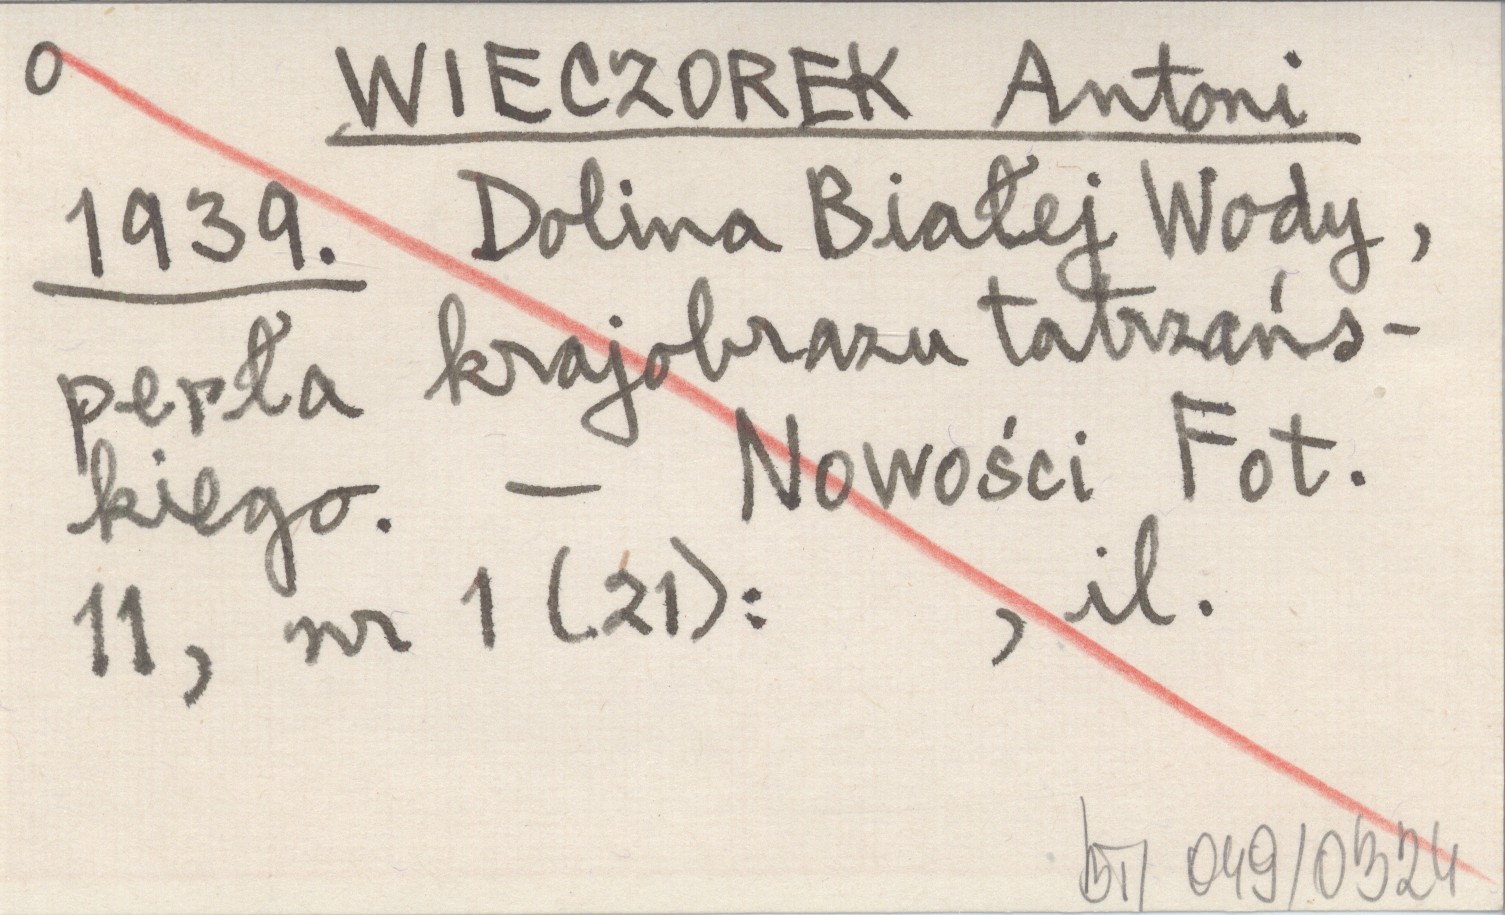 o WIECZOREK Antoni
1939. Dolina Białej Wody,
perła krajobrazu tatrzańs-
kiego. — Nowości Fot.
11, nr 1 (21): , il.
049/0324